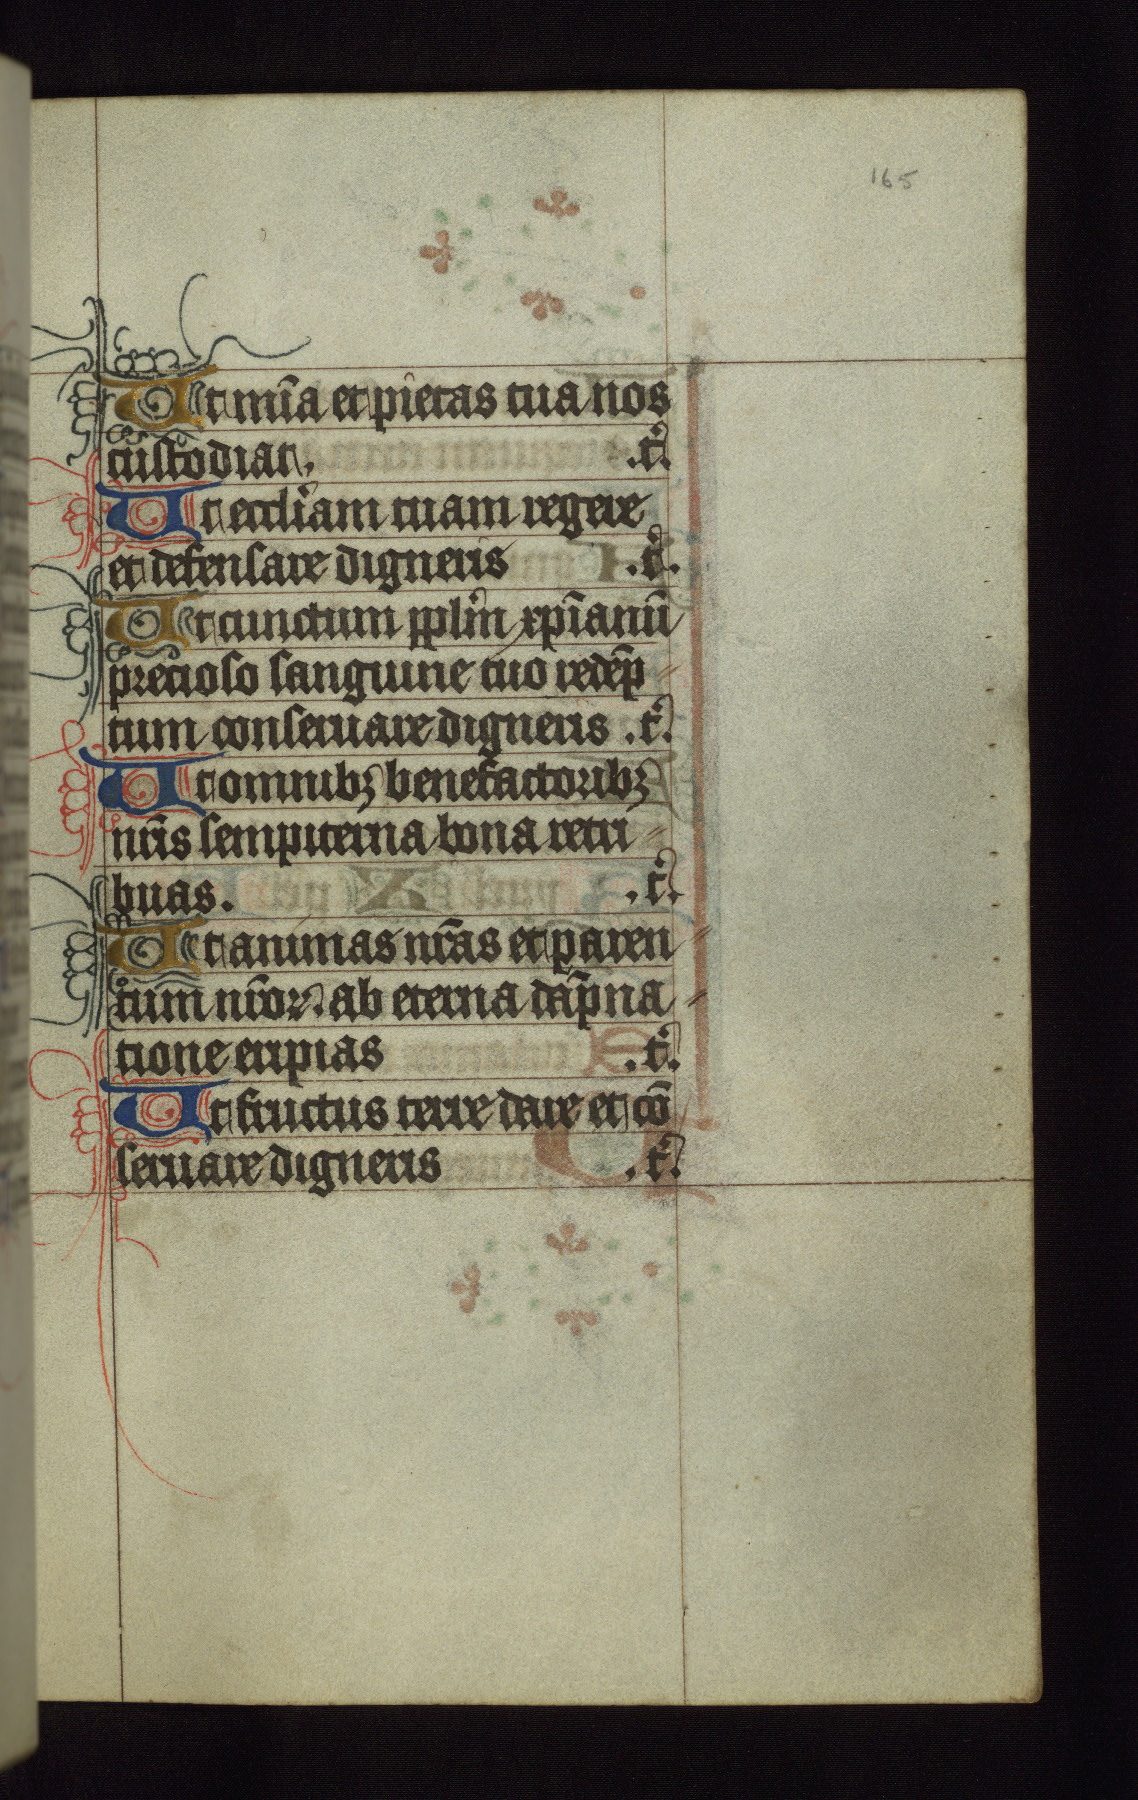 165
Ut mi̅a et pietas tua nos
custodiat. .t͛.
Ut eccli̅am tuam regere
et defensare digneris .t͛.
Ut cunctum pplm̅ xp̅ianu̅
precioso sanguine tuo rede̅p
tum conseruare digneris .t͛.
Ut omnibꝫ benefactoribꝫ
nr̅is sempiterna bona retri
buas. .t͛.
Ut animas nr̅as et paren
tum nr̅oꝝ ab eterna da̅pna
tione eripias .t͛.
Ut fructus terre dare et co̅
seruare digneris .t͛.